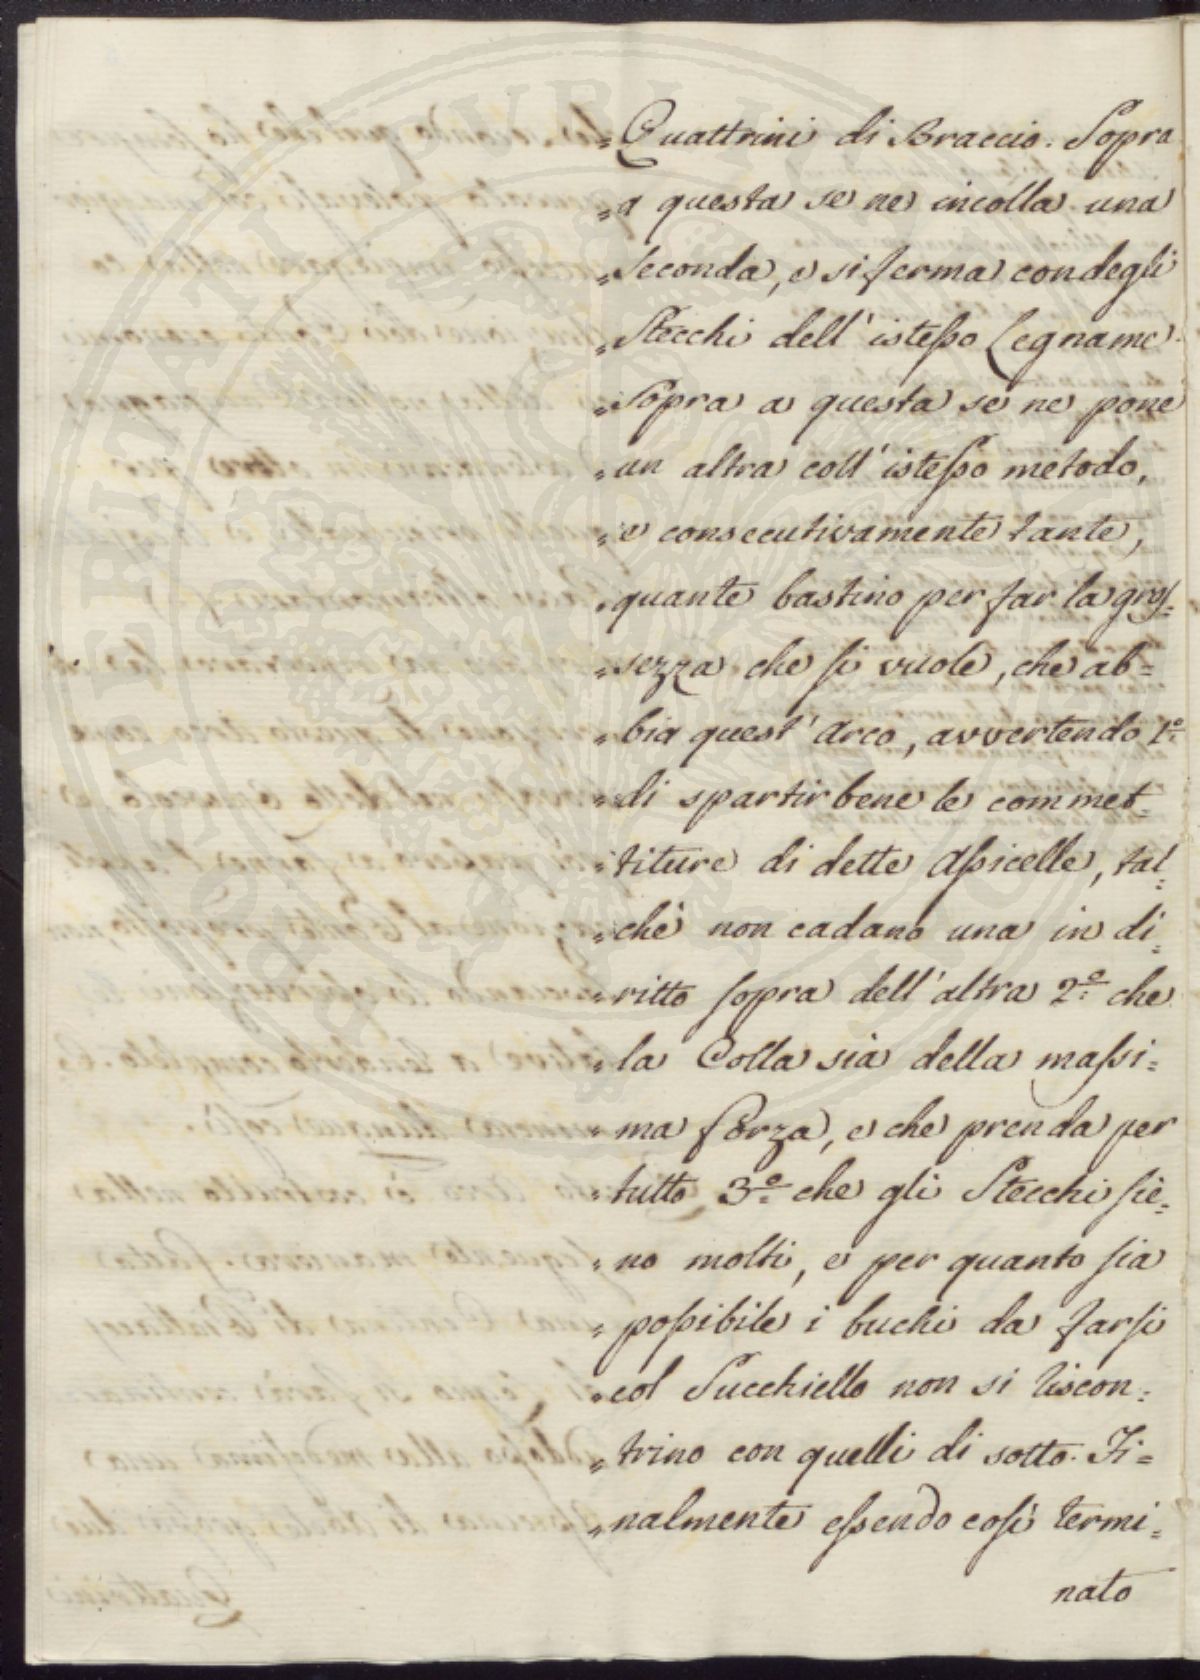 „Quattrini di Braccio. Sopra
„a questa se ne incolla una
„seconda, e si ferma con degli
„Stecchi dell' istesso Legname.
„Sopra a questa se ne pone
„un altra coll' istesso metodo,
„e consecutivamente tante,
„quante bastino per far la gros=
„sezza che si vuole, che ab=
„bia quest' Arco, avvertendo 1.º
„di spartir bene le commet=
„titure di dette Assicelle, tal=
„chè non cadano una in di=
„ritto sopra dell' altra 2.º che
„la Colla sia della massi=
„ma forza, e che prenda per
„tutto 3.º che gli Stecchi sie=
„no molti, e per quanto sia
„possibile i buchi da farsi
„col Succhiello non si riscon=
„trino con quelli di sotto. Fi=
„nalmente essendo così termi=
nato
PERITATI PUBLICAE